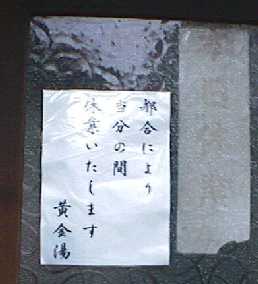 都合により
当分の間
休業いたします
黄金湯